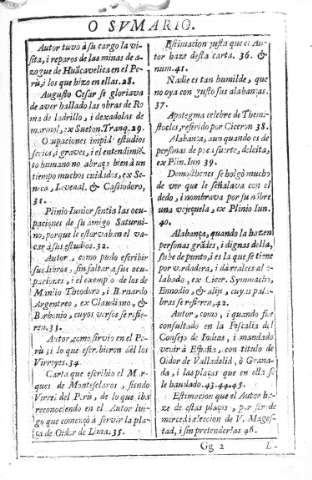 O SVMARIO.
Autor tuvo à su cargo la vi-
sita, i reparos de las minas de a-
zogue de Huãcavelica en el Pe-
rù, i los que hizo en ellas. 28.
Augusto Cesar se gloriava
de aver hallado las obras de Ro-
ma de ladrillo, i dexadolas de
marmol, ex Sueton. Tranq. 29.
Ocupaciones impidẽ estudios
serios, i graves, i el entendimiẽ-
to humano no abraça bien à un
tiempo muchos cuidados, ex Se-
neca, Iuvenal. & Casiodoro,
31.
Plinio Iunior sentia las ocu-
paciones de su amigo Saturni-
no, porque le estorvabam el va-
car à sus estudios. 32.
Autor, como pudo escribir
sus libros, sin faltar a sus ocu-
paciones, i exemplo de las de
Manlio Theodoro, i Bernardo
Argentreo, ex Claudiano, &
Barbonio, cuyos versos se refie-
ren. 33.
Autor como sirvio en el Pe-
rù, i lo que escribieron dèl los
Virreyes. 34.
Carta que escribio el Mar-
ques de Montesclaros, siendo
Virrei del Perù, de lo que iba
reconociendo en el Autor lue-
go que començò à servir la pla-
ça de Oidor de Lima. 35.
Estimacion justa que el Au-
tor haze desta carta. 36. &
num. 41.
Nadie es tan humilde, que
no oya con gusto sus alabanças.
37.
Apotegma celebre de Themi-
stocles, referido por Ciceron 38.
Alabança, aun quando es de
personas de poca suerte, deleita,
ex Plin. Iun. 39.
Demosthenes se holgò mucho
de ver que le señalava con el
dedo, i nombrava por su nõbre
una viejeçuela, ex Plinio Iun.
40.
Alabança, quando la hazen
personas grãdes, i dignas della,
sube de punto, i es la que se tiene
por verdadera, i dà reales al a-
labado, ex Cicer. Symmacho,
Ennodio, & alijs, cuyas pala-
bras se refieren, 42.
Autor, como, i quando fue
consultado en la Fiscalia del
Consejo de Indias, i mandado
venir à España, con titulo de
Oidor de Valladolid, ò Grana-
da, i las plaças que en esta se
le han dado. 43. 44. 45.
Estimacion que el Autor ha-
ze de estas plaças, por ser de
mera eleccion de V. Mages-
tad, i sin pretenderlas 46.
Gg 2